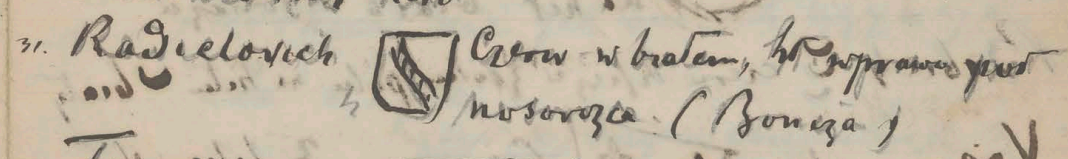 31. Radzielovich Czerw w białem, w prawo pół
nosorożca (Bończa)